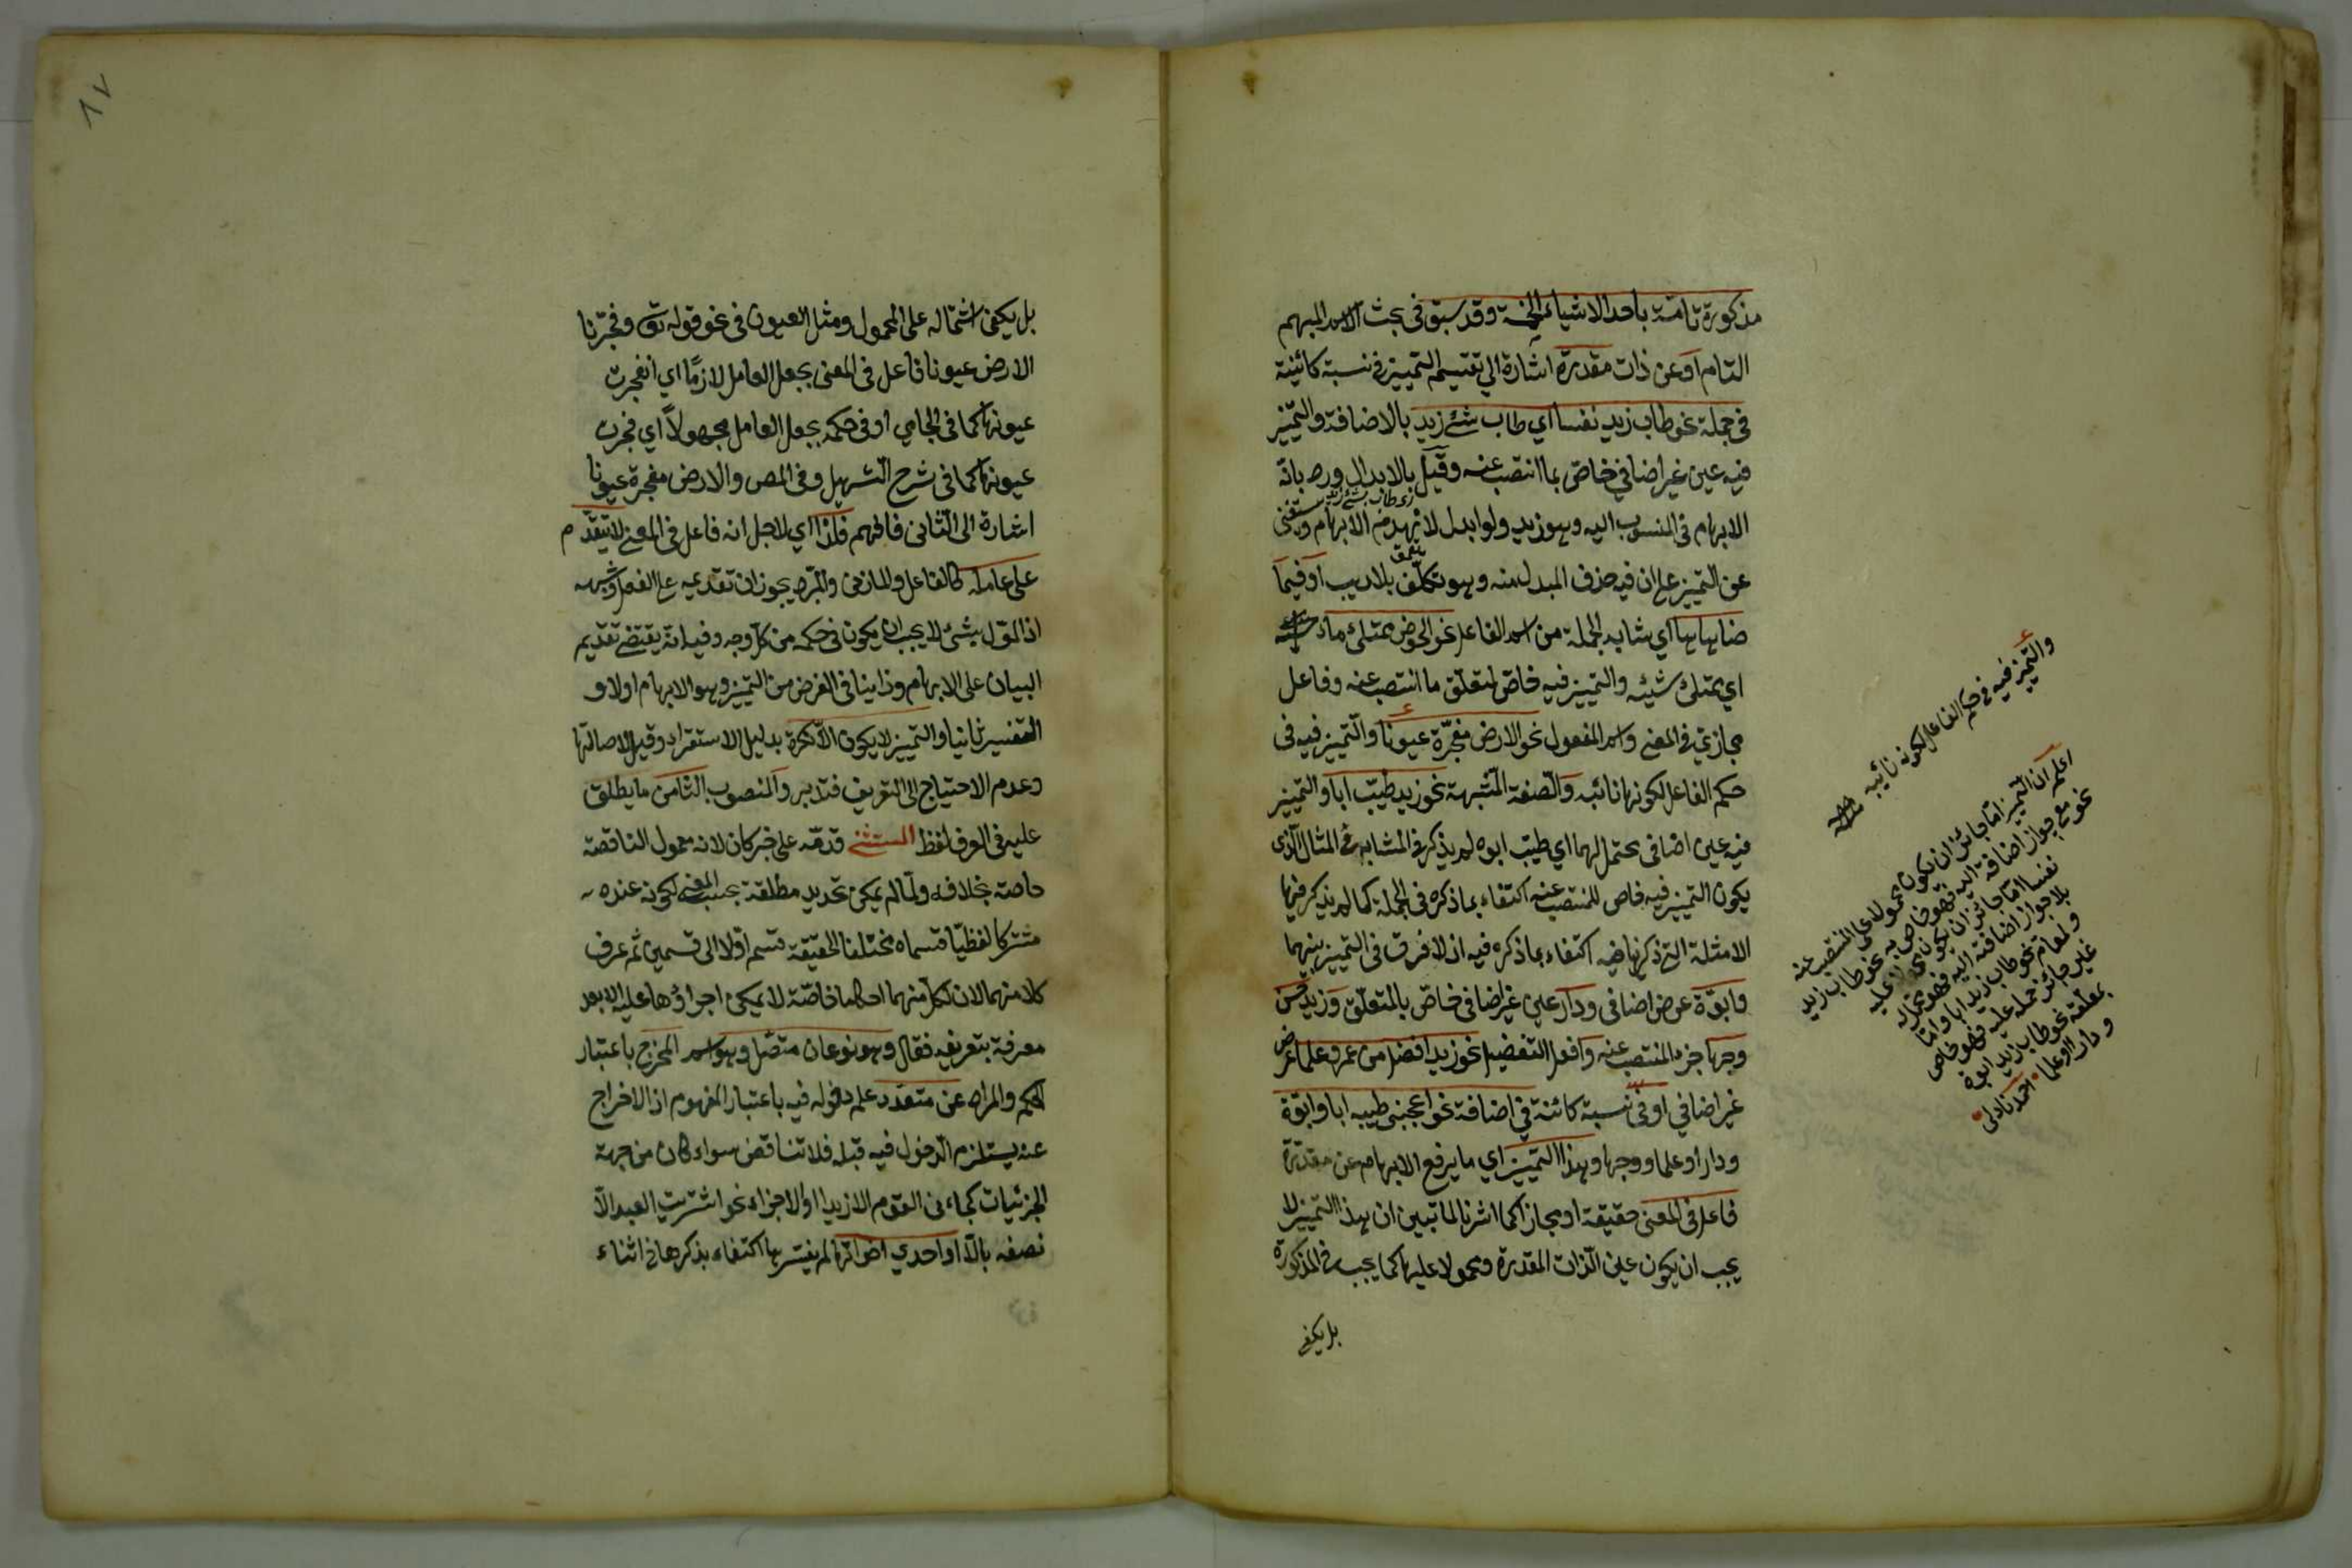 مذكورة تامّة باحد الاشياء الخمسة وقد سبق في بحث الاسم المبهم
التام او عن ذات مقدرة اشارة الى تقسيم التمييز في نسبة كائنة
في جملة نحو طاب زيد نفسا اي طاب شئ زيد بالاضافة والتمييز
فيه عين غير اضافي خاص بما انتصب عنه وقيل بالابدال ورد بانّ
الابهام في المنسوب اليه وهو زيد ولو ابدل لانهدم الابهام ويستغنى
اي طاب شئ زيد
عن التمييز على ان فيه حذف المبدل منه وهو تكلّف بلا ريب او فيما
ضاهاها اي شابه الجملة من اسم الفاعل نحو الحوض ممتلئ ماء
اي ممتلئ شيئه والتمييز فيه خاص لمتعلّق ما انتصب عنه وفاعل
مجازيّ في المعنى واسم المفعول نحو الارض مفجّرة عيونا والتمييز فيه في
حكم الفاعل لكونها نائبه والصفة المشبهة نحو زيد طيّب ابا والتمييز
فيه عين اضافي محتمل لهما اي طيّب ابوه لم يذكر في المشابه في المثال الذي
يكون التمييز فيه خاص للمنتصب عنه اكتفاء بما ذكره في الجملة كما لم يذكر فيها
الامثلة التي ذكرها فيه اكتفاء بما ذكره فيه اذ لا فرق في التمييز بينهما
وابوّة عرض اضافي ودار عين غير اضافي خاص بالمتعلّق وزيد حسن
وجها جزء المنتصب عنه وافعل التفضيل نحو زيد افضل من عمرو علما عرض
غير اضافي او في نسبة كائنة في اضافة نحو اعجبني طيبه ابا وابوّة
ودارا وعلما ووجها وهذا التمييز اي ما يرفع الابهام عن مقدّرة
فاعل في المعنى حقيقة او مجازا كما اشرنا لما تبين ان هذا التمييز لا
يجب ان يكون عين الذات المقدرة ومحمولا عليها كما يجب في المذكورة
بل يكفي
والتمييز فيه في حكم الفاعل لكونه نائبه
اعلم ان التمييز امّا جائز ان يكون محمولا على المنتصب عنه
مع جواز اضافته اليه فهو خاص به نحو طاب زيد
نفسا امّا جائز ان يكون عليه
بلا جواز اضافته اليه فهو محتمل له
ولمتعلقه نحو طاب زيد ابا وامّا
غير جائز حمله عليه فهو خاص
بمتعلّقه نحو طاب زيد ابوة
ودارا وعلما
بل يكفي اشتماله على المحمول ومثل العيون في نحو قوله تع وفجّرنا
الارض عيونا فاعل في المعنى بجعل العامل لازمًا اي انفجرت
عيونها كما في الجامي او في حكمه بجعل العامل مجهولاً اي فجرت
عيونها كما في شرح التسهيل وفي المص والارض مفجرة عيونا
اشارة الى الثاني فافهم فلذا اي لاجل انه فاعل في المعنى لا يتقدّم
على عامله كالفاعل والمازني والمبرد يجوزان تقديمه على الفعل وشبهه
اذ المؤول بشئ لا يجب ان يكون في حكمه من كل وجه وفيه انه يقتضي تقديم
البيان على الابهام وذا ينافي الغرض من التمييز وهو الابهام اولا و
التفسير ثانيا والتمييز لا يكون الّا نكرة بدليل الاستقراء وقيل لاصالتها
وعدم الاحتياج الى التعريف فتدبر والمنصوب الثامن ما يطلق
عليه في العرف لفظ المستثنى قدمّه على خبر كان لانه معمول الناقصة
خاصة بخلافه ولما لم يمكن تحديد مطلقه بحسب المعنى لكونه عنده
مشتركا لفظيّا قسماه مختلفا الحقيقة قسم اوّلا الى قسمين ثم عرف
كلا منهما لان لكل منهما احكاما خاصّة لا يمكن اجراؤها عليه الا بعد
معرفة بتعريفه فقال وهو نوعان متصّل وهو اسم المخرج باعتبار
الحكم والمراد عن متعدّد علم دخوله فيه باعتبار المفهوم اذ الاخراج
عنه يستلزم الدخول فيه قبله فلا تناقض سواء كان من جهة
الجزئيات كجاءني القوم الا زيدا او الاجزاء نحو اشتريت العبد الّا
نصفه بالّا او احدي اخواتها لم يفسّرها اكتفاء بذكرها في اثناء